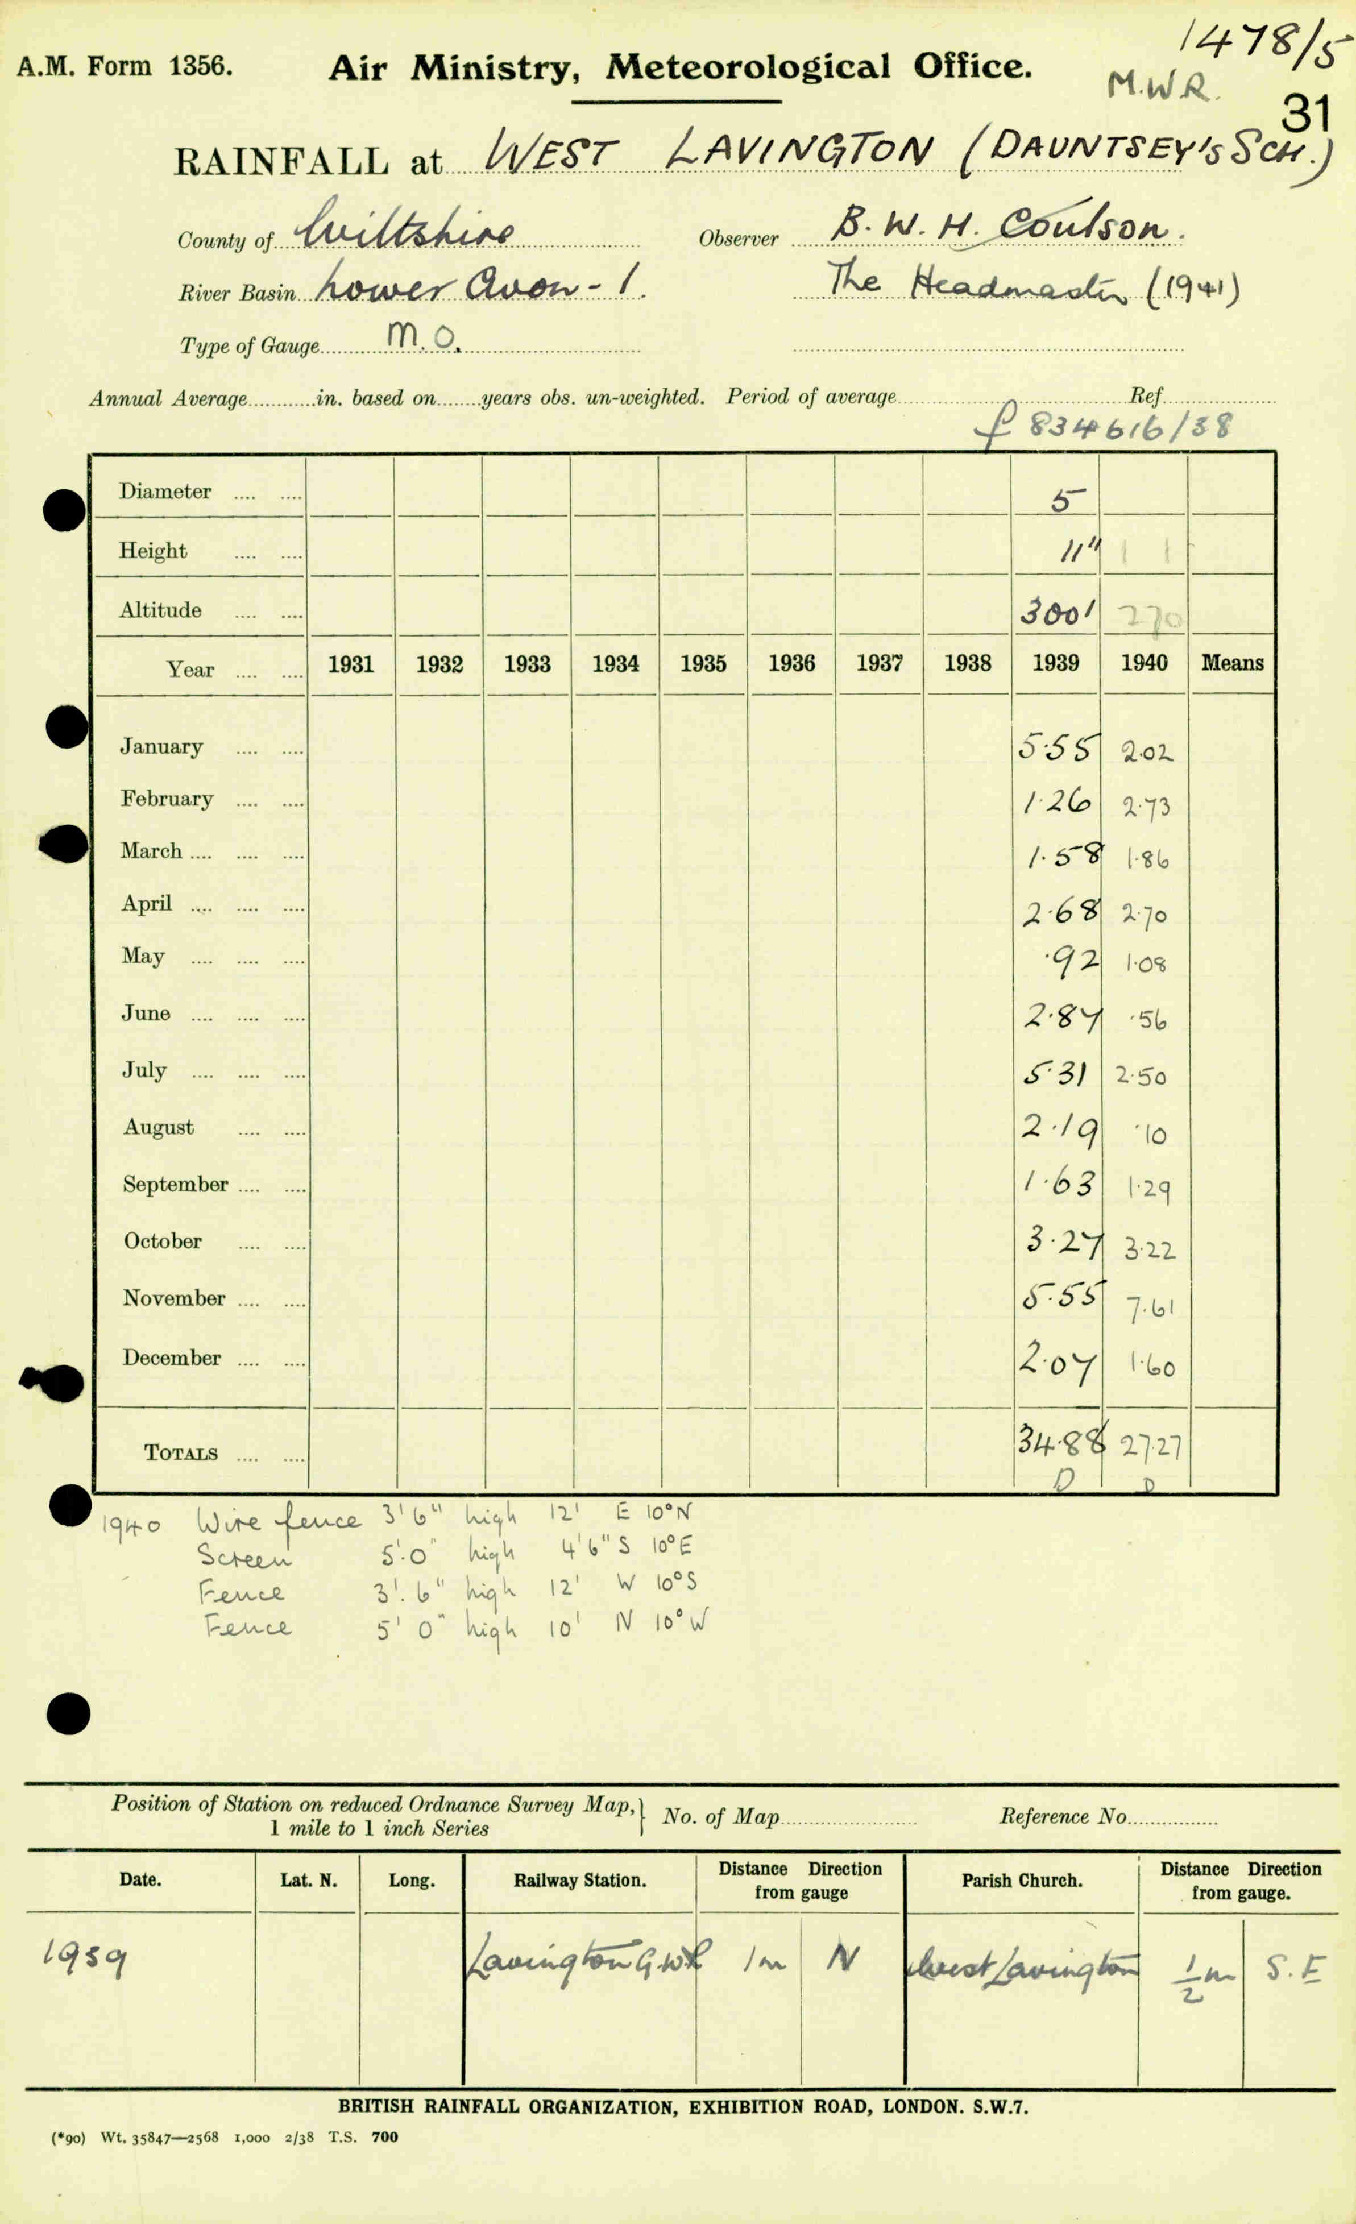 1478/5
A.M. Form 1356. Air Ministry, Meteorological Office.
M.W.R.
31
RAINFALL at WEST LAVINGTON (DAUNTSEY'S SCH.)
County of Wiltshire Observer B. W. H. Coulson.
River Basin Lower Avon - 1. The Headmaster (1941)
Type of Gauge M.O.
Annual Average in. based on years obs. un-weighted. Period of average Ref.
f 834616/38
Diameter .... .... 5
Height .... .... 11" 1 1
Altitude .... .... 300' 270
Year .... .... 1931 1932 1933 1934 1935 1936 1937 1938 1939 1940 Means
January .... .... 5.55 2.02
February .... .... 1.26 2.73
March .... .... .... 1.58 1.86
April .... .... .... 2.68 2.70
May .... .... .... .92 1.08
June .... .... .... 2.87 .56
July .... .... .... 5.31 2.50
August .... .... 2.19 .10
September .... .... 1.63 1.29
October .... .... 3.27 3.22
November .... .... 5.55 7.61
December .... .... 2.07 1.60
TOTALS .... .... 34.88 27.27
D D
1940 Wire fence 3' 6" high 12' E 10°N
Screen 5'.0" high 4'6" S 10°E
Fence 3'.6" high 12' W 10°S
Fence 5' 0" high 10' N 10°W
Position of Station on reduced Ordnance Survey Map,} No. of Map Reference No.
1 mile to 1 inch Series
Date. Lat. N. Long. Railway Station. Distance Direction Parish Church. Distance Direction
from gauge from gauge.
1939 Lavington G.W.R 1m N West Lavington 1/2 m S.E
BRITISH RAINFALL ORGANIZATION, EXHIBITION ROAD, LONDON. S.W.7.
(*90) Wt. 35847—2568 1,000 2/38 T.S. 700